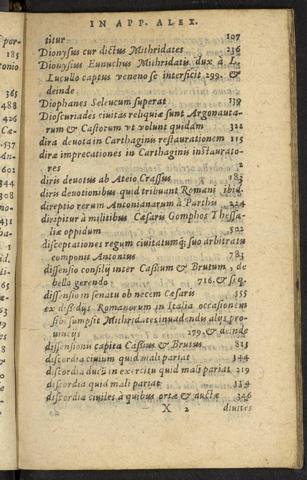 IN APP. ALEX.
titur 107
Dionysius cur dictus Mithridates 236
Dionysius Eunuchus Mithridatis dux à L.
Lucullo captus veneno se interficit 299. &
deinde.
Diophanes Seleucum superat 139
Dioscuriades civitas reliquiæ sunt Argonauta-
rum & Castorum ut volunt quidam 322
dira devota in Carthaginis restaurationem 115
diræ imprecationes in Carthaginis instaurato-
res 2
diris devotus ab Ateio Crassus 183
diris devotionibus quid tribuant Romani ibid.
direptio rerum Antonianarum à Parthis 224
diripitur à militibus Cæsaris Gomphos Thessa-
liæ oppidum 502
disceptationes regum civitatumq; suo arbitratu
componit Antonius 783
dissensio consilij inter Cassium & Brutum, de
bello gerendo 716. & seq.
dissensio in senatu ob necem Cæsaris 555
ex dissidijs Romanorum in Italia occasionem
sibi sumpsit Mithridates invadendi alias pro-
vincias 279. & deinde
dissensionis capita Cassius & Brutus 813
discordia civium quid mali pariat 344
discordia ducũ in exercitu quid mali pariat 219
discordia quid mali pariat 334
discordiæ civiles a quibus ortæ & auctæ 346
X 2
divites
por-
185
tonio.
365
488
426
Cæ-
531
464
401